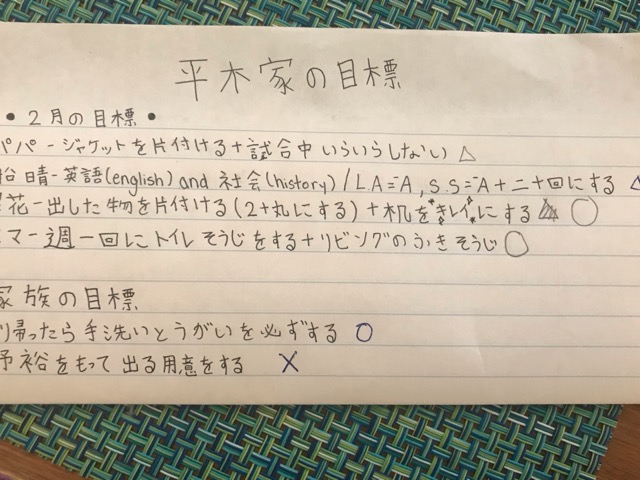 平木家の目標
• 2月の目標 •
パパ - ジャケットを片付ける + 試合中いらいらしない △
晴 - 英語(english) and 社会(history) / L.A = A, S.S = A + 二十回にする △
花 - 出した物を片付ける (2+丸にする) + 机をキレイにする ○
マ - 週一回にトイレそうじをする + リビングのふきそうじ ○
家族の目標
帰ったら手洗いとうがいを必ずする ○
予裕をもって出る用意をする ×